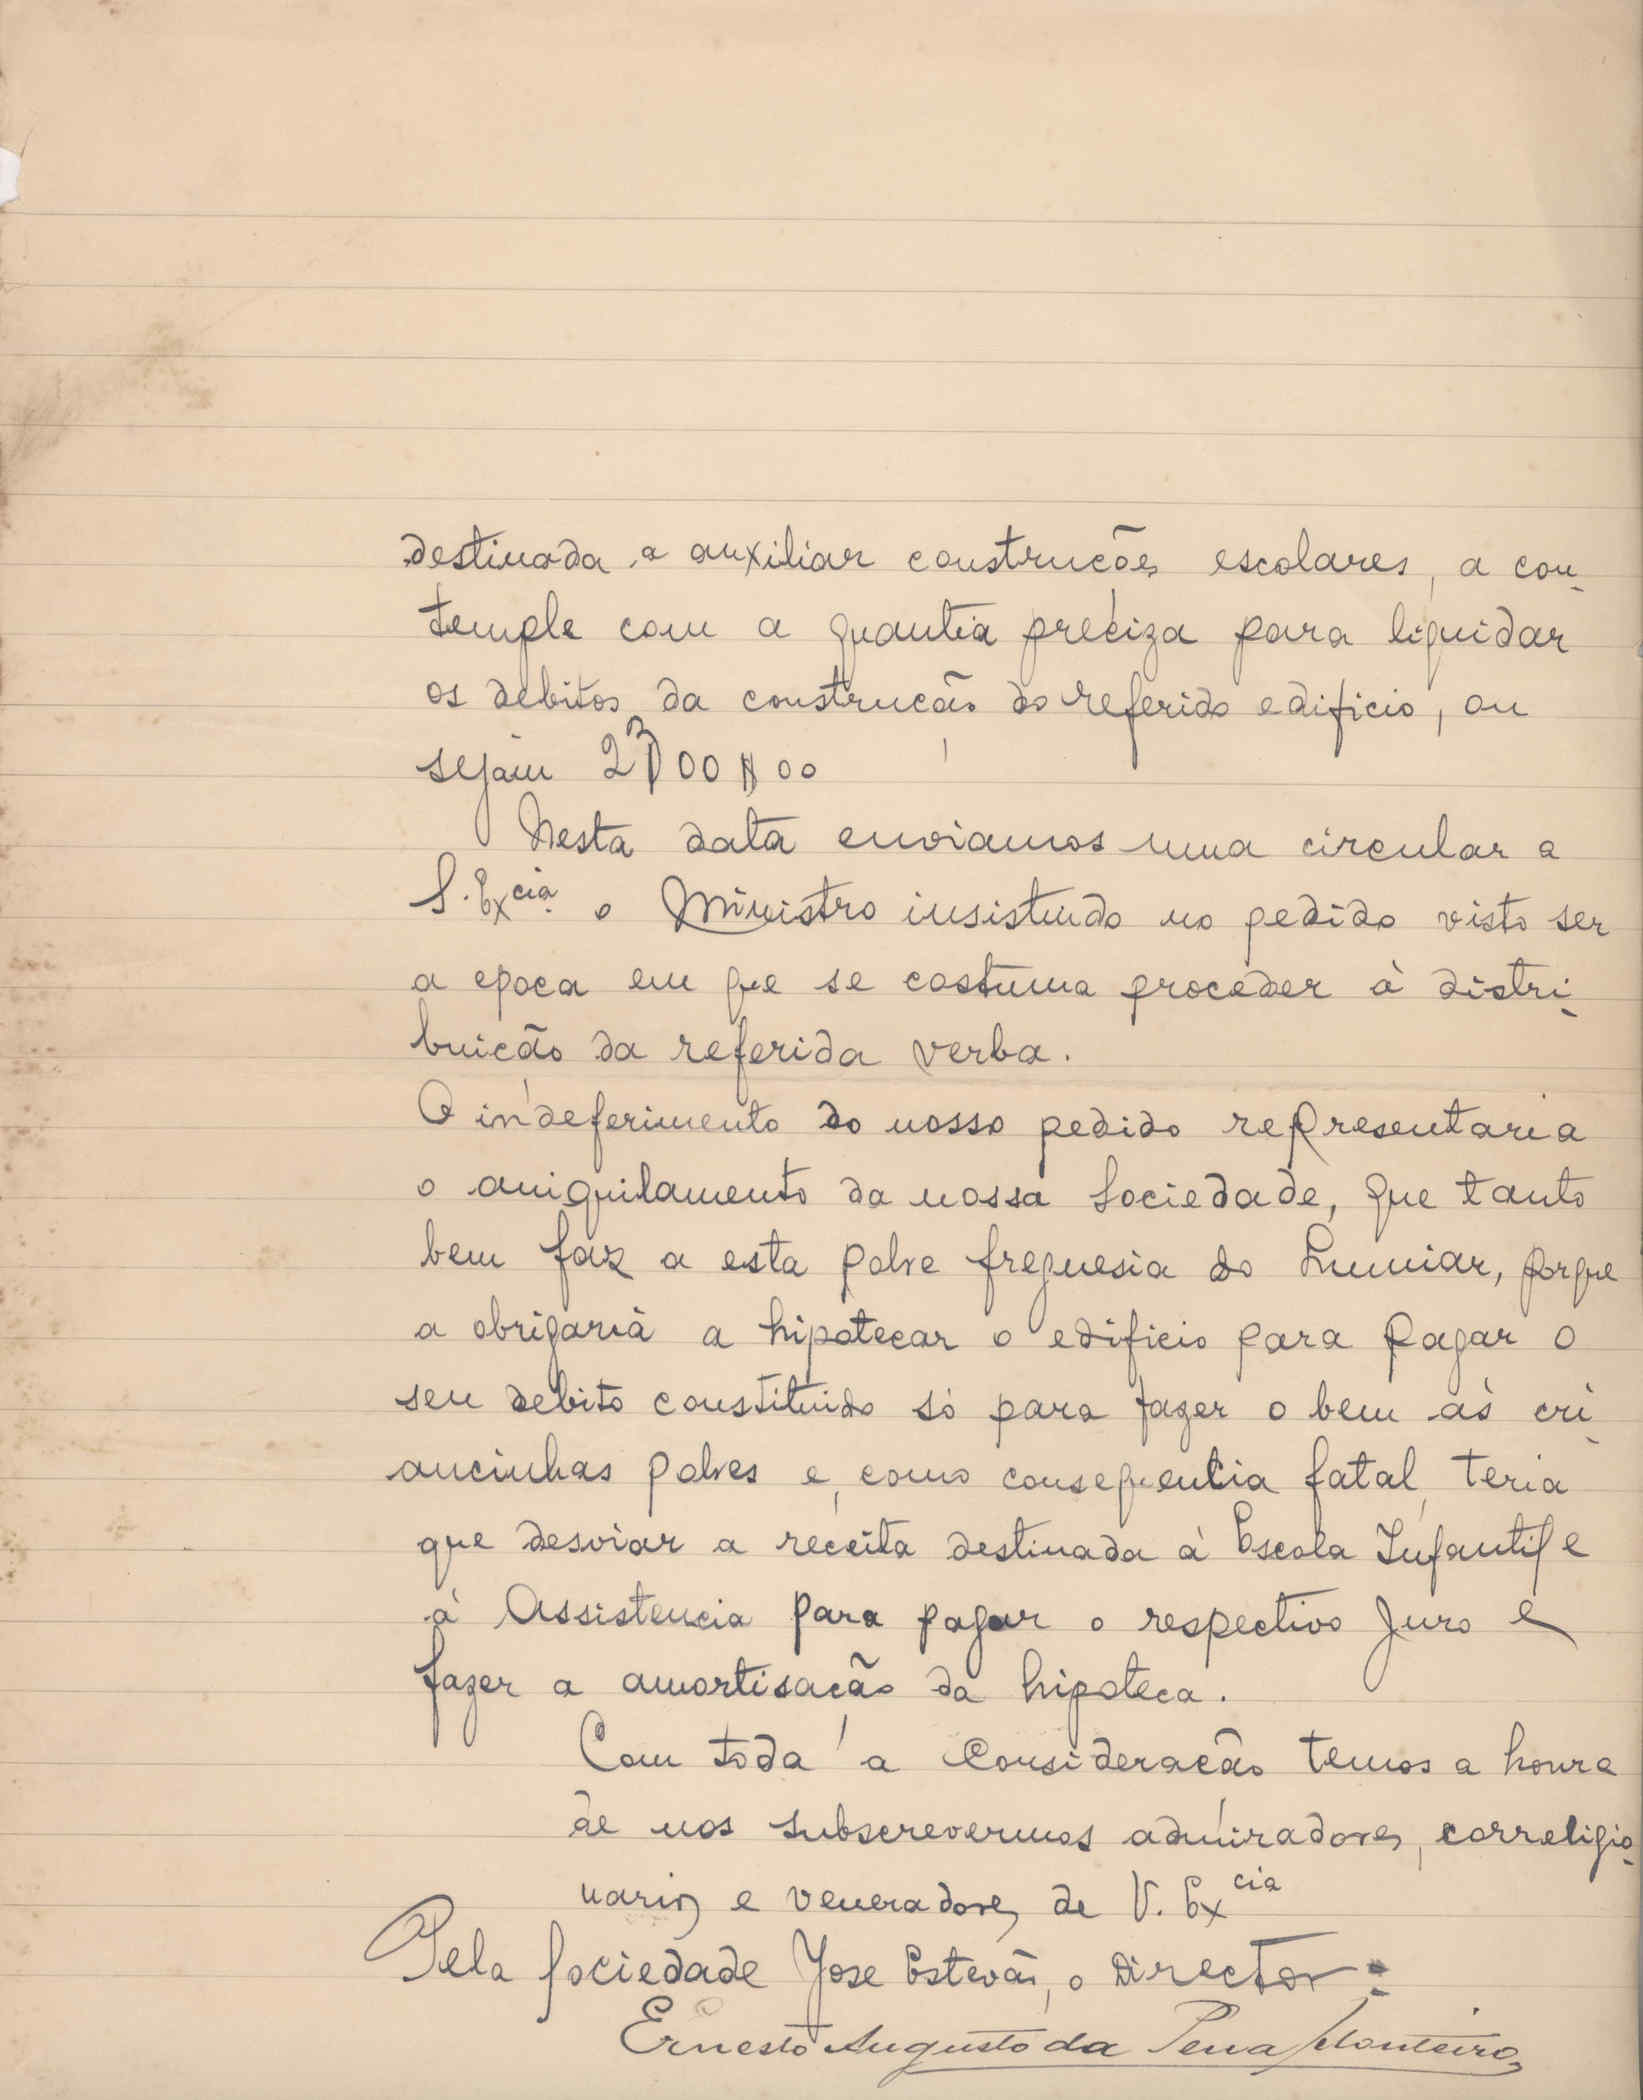 destinada a auxiliar construções escolares, a con-
temple com a quantia preciza para liquidar
os debitos da construção do referido edificio, ou
sejam
Nesta data enviamos uma circular a
S. Excia. o Ministro insistindo no pedido visto ser
a epoca em que se costuma proceder á distri-
buição da referida verba.
O indeferimento do nosso pedido representaria
o aniquilamento da nossa Sociedade, que tanto
bem faz a esta pobre freguesia do Lumiar, porque
a obrigaria a hipotecar o edificio para pagar o
seu debito constituido só para fazer o bem ás cri-
ancinhas pobres e, como consequentia fatal, teria
que desviar a receita destinada á Escola Infantil e
á Assistencia para pagar o respectivo juro e
fazer a amortisação da hipoteca.
Com toda a Consideração temos a honra
de nos subscrevermos admiradores, correligio-
narios e veneradores de V. Excia
Pela Sociedade Jose Estevão, o Director:
Ernesto Augusto da Pena Monteiro